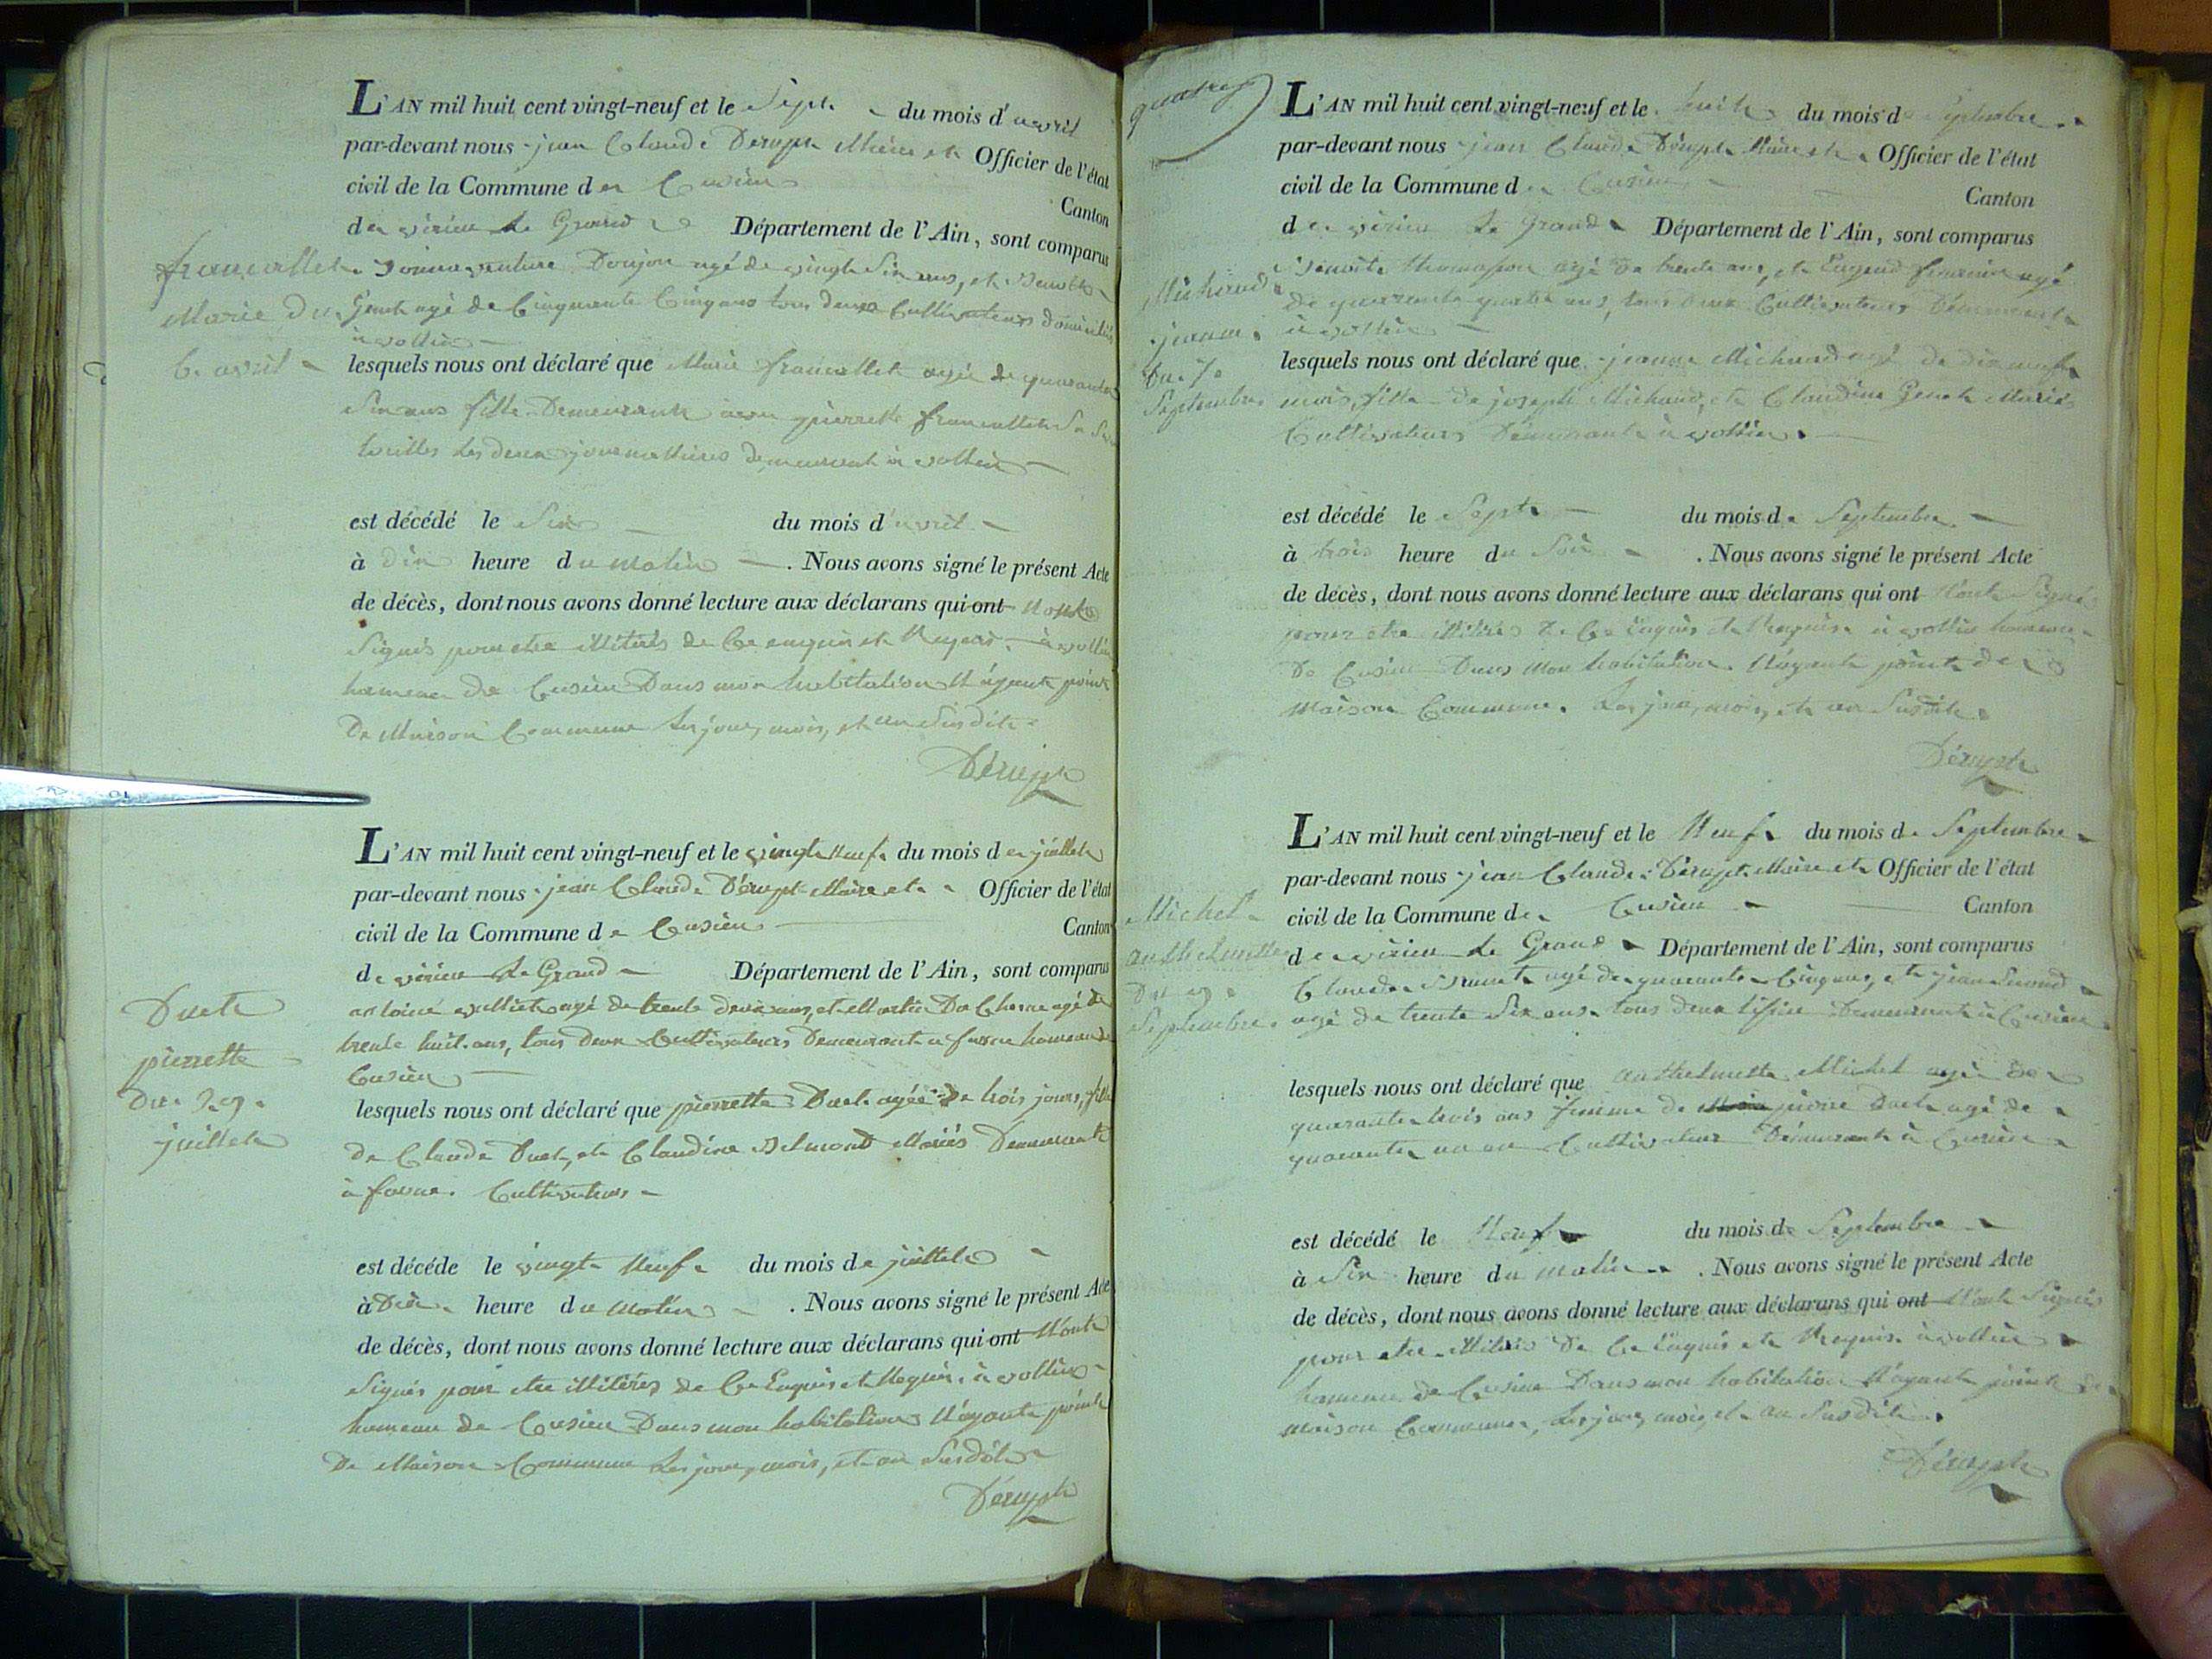 L'AN mil huit cent vingt-neuf et le Sept du mois d'avril
par-devant nous jean Claude Dérupt Maire et Officier de l'état
civil de la Commune de Cusieu
Canton
de virieu Le Grand Département de l'Ain, sont comparus
francallet
Marie du
6. avril
Bonnaventure Donjon agé de vingt Six ans, et Benoit
Genet agé de Cinquante Cinq ans tous deux Cultivateurs domiciliés
à vollien
lesquels nous ont déclaré que Marie francallet agée de quarante
Six ans fille Demeurant avec pierrette francallet Sa
toutes Les deux journallières demeurant à vollien
est décédé le Six du mois d'avril
à dix heure du matin . Nous avons signé le présent Acte
de décès, dont nous avons donné lecture aux déclarans qui ont N'ont
Signés pour etre illitérés de Ce enquis et Requis. à vollien
hameau de Cusieu Dans mon habitation N'ayant point
De Maison Commune Les jour, mois, et an Susdits
Dérupt
L'AN mil huit cent vingt-neuf et le vingt Neuf du mois de juillet
par-devant nous jean Claude Dérupt Maire et Officier de l'état
civil de la Commune de Cusieu
Canton
de virieu Le Grand Département de l'Ain, sont comparus
Duet
pierrette
Du 29.
juillet
antoine vulliet agé de trente deux ans, et Martin agé de
trente huit ans, tous deux Cultivateurs Demeurant a hameau de
Cusieu
lesquels nous ont déclaré que pierrette Duet agée De trois jours, fille
De Claude Duet, et Claudine Belmont Mariés Demeurant
à Cultivateurs
est décéde le vingt Neuf du mois de juillet
à Dix heure du Matin . Nous avons signé le présent Acte
de décès, dont nous avons donné lecture aux déclarans qui ont N'ont
Signés pour etre illitérés de Ce Enquis et Requis. à vollien
hameau de Cusieu Dans mon habitation N'ayant point
De Maison Commune Les jour, mois, et an Susdits
Dérupt
quatre
L'AN mil huit cent vingt-neuf et le huit du mois de Septembre
par-devant nous jean Claude Dérupt Maire et Officier de l'état
civil de la Commune de Cusieu
Canton
de virieu Le Grand Département de l'Ain, sont comparus
Michaud
jeanne
Du 7.
Septembre
Benoite thomasson agé De trente ans, et agé
De quarante quatre ans, tous deux Cultivateurs Demeurant
à vollien
lesquels nous ont déclaré que jeanne Michaud agé de dix neuf
mois, fille de joseph Michaud, et Claudine Genet Mariés
Cultivateurs Demeurant à vollien.
est décédé le Sept du mois de Septembre
à trois heure du Soir . Nous avons signé le présent Acte
de décès, dont nous avons donné lecture aux déclarans qui ont N'ont Signé
pour etre illitérés de Ce Enquis et Requis. à vollien hameau
De Cusieu Dans mon habitation. N'ayant point de
Maison Commune. Les jour, mois, et an Susdits
Dérupt
L'AN mil huit cent vingt-neuf et le Neuf du mois de Septembre
par-devant nous jean Claude Dérupt Maire et Officier de l'état
civil de la Commune de Cusieu
Canton
de virieu Le Grand Département de l'Ain, sont comparus
Michel
anthelmette
Du 9.
Septembre
Claude agé de quarante Cinq ans, et jean
agé de trente Six ans. tous deux Demeurant à Cusieu
lesquels nous ont déclaré que anthelmette Michel agé de
quarante trois ans femme de pierre Duet agé de
quarante un an Cultivateur Demeurant à Cusieu
est décédé le Neuf du mois de Septembre
à Six heure du matin . Nous avons signé le présent Acte
de décès, dont nous avons donné lecture aux déclarans qui ont N'ont Signés
pour etre illitérés de Ce Enquis et Requis. à vollien
hameau de Cusieu Dans mon habitation N'ayant point de
maison Commune, Les jour, mois, et an Susdits.
Dérupt